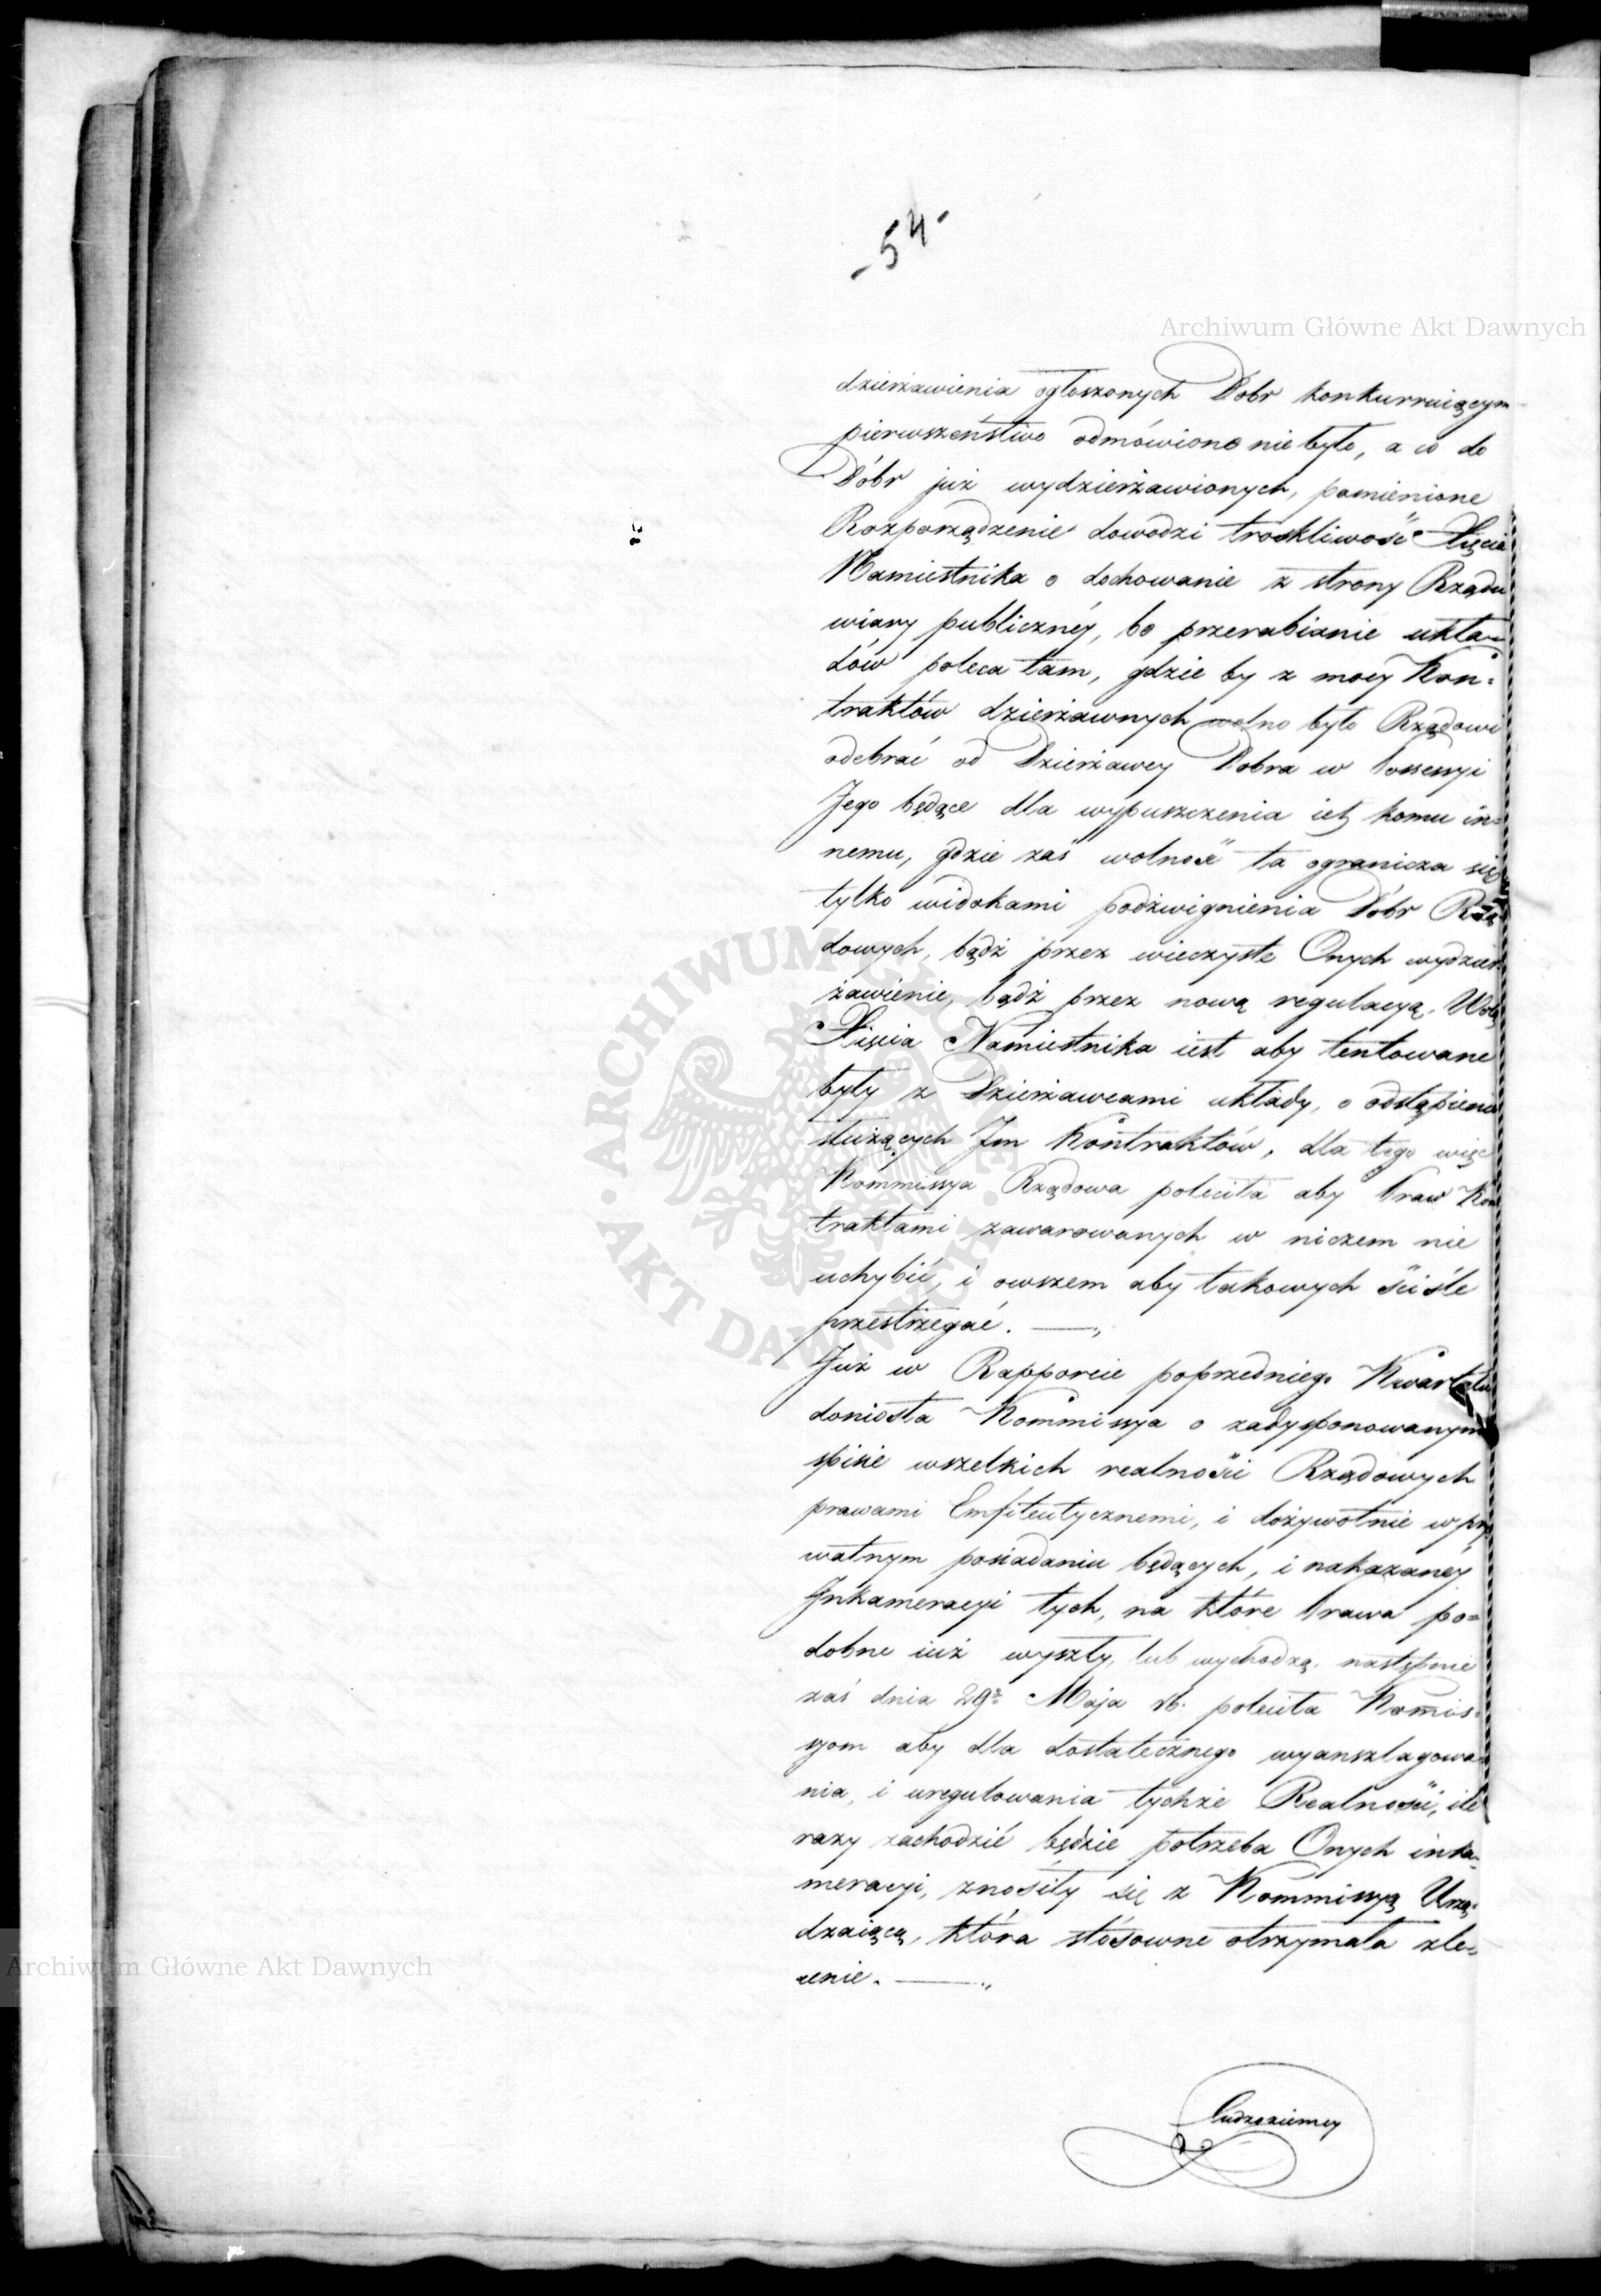 - 54 -
Archiwum Główne Akt Dawnych
dzierżawienia ogłoszonych Dobr konkurruiącym
pierwszeństwo odmówione nie było, a co do
Dóbr już wydzierżawionych, pomienione
Rozporządzenie dowodzi troskliwość Xięcia
Namiestnika o dochowanie z strony Rządu
wiary publicznéy, bo przerabianie ukła-
dów poleca tam, gdzie by z mocy Kon-
traktów dzierżawnych wolno było Rządowi
odebrać od Dzierżawcy Dobra w Possessyi
Jego będące dla wypuszczenia ich komu in-
nemu, gdzie zaś wolność ta ogranicza się
tylko widokami podźwignienia Dóbr Rzą-
dowych, bądź przez wieczyste Onych wydzier-
żawienie, bądź przez nową regulacyą. Wolą
Xięcia Namiestnika iest aby tentowane
były z Dzierżawcami układy, o odstąpienie
służących Jm Kontraktów, dla tego więc
Kommissya Rządowa poleciła aby Praw Kon
traktami zawarowanych w niczem nie
uchybić, i owszem aby takowych ściśle
przestrzegać.
Już w Rapporcie poprzedniego Kwartału
doniosła Kommissya o zadysponowanym
spisie wszelkich realności Rządowych
prawami Emfiteutycznemi, i dożywotnie w pry
watnym posiadaniu będących, i nakazanéy
Jnkameracyi tych, na które Prawa po-
dobne iuż wyszły, lub wychodzą. następnie
zaś dnia 29º Maja rb. poleciła Komis-
syom aby dla dostatecznego wyanszlagowa-
nia, i uregulowania tychże Realności, ile
razy zachodzić będzie potrzeba Onych inka-
meracyi, znosiły się z Kommissyą Urzą-
dzaiącą, która stósowne otrzymała zle-
cenie.
Archiwum Główne Akt Dawnych
Cudzoziemcy
ARCHIWUM GŁÓWNE AKT DAWNYCH